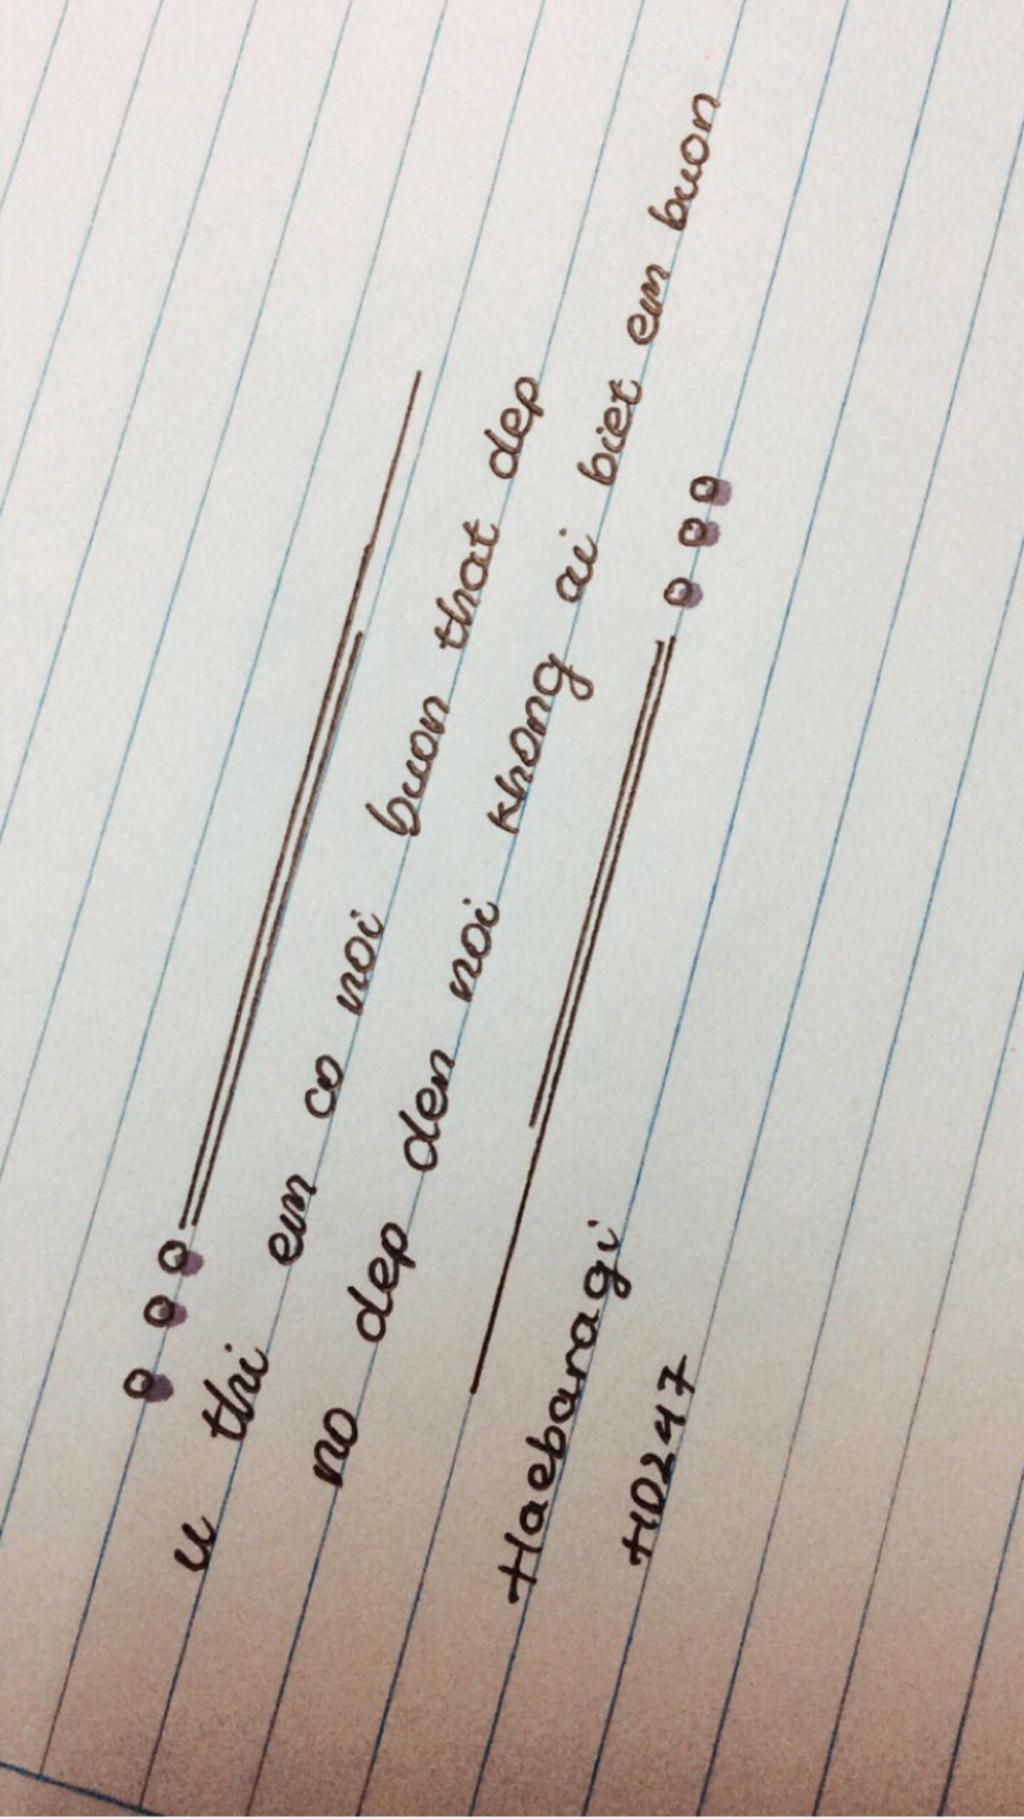 u thi em co noi buon that dep
no dep den noi khong ai biet em buon
Haebaragi
HD247